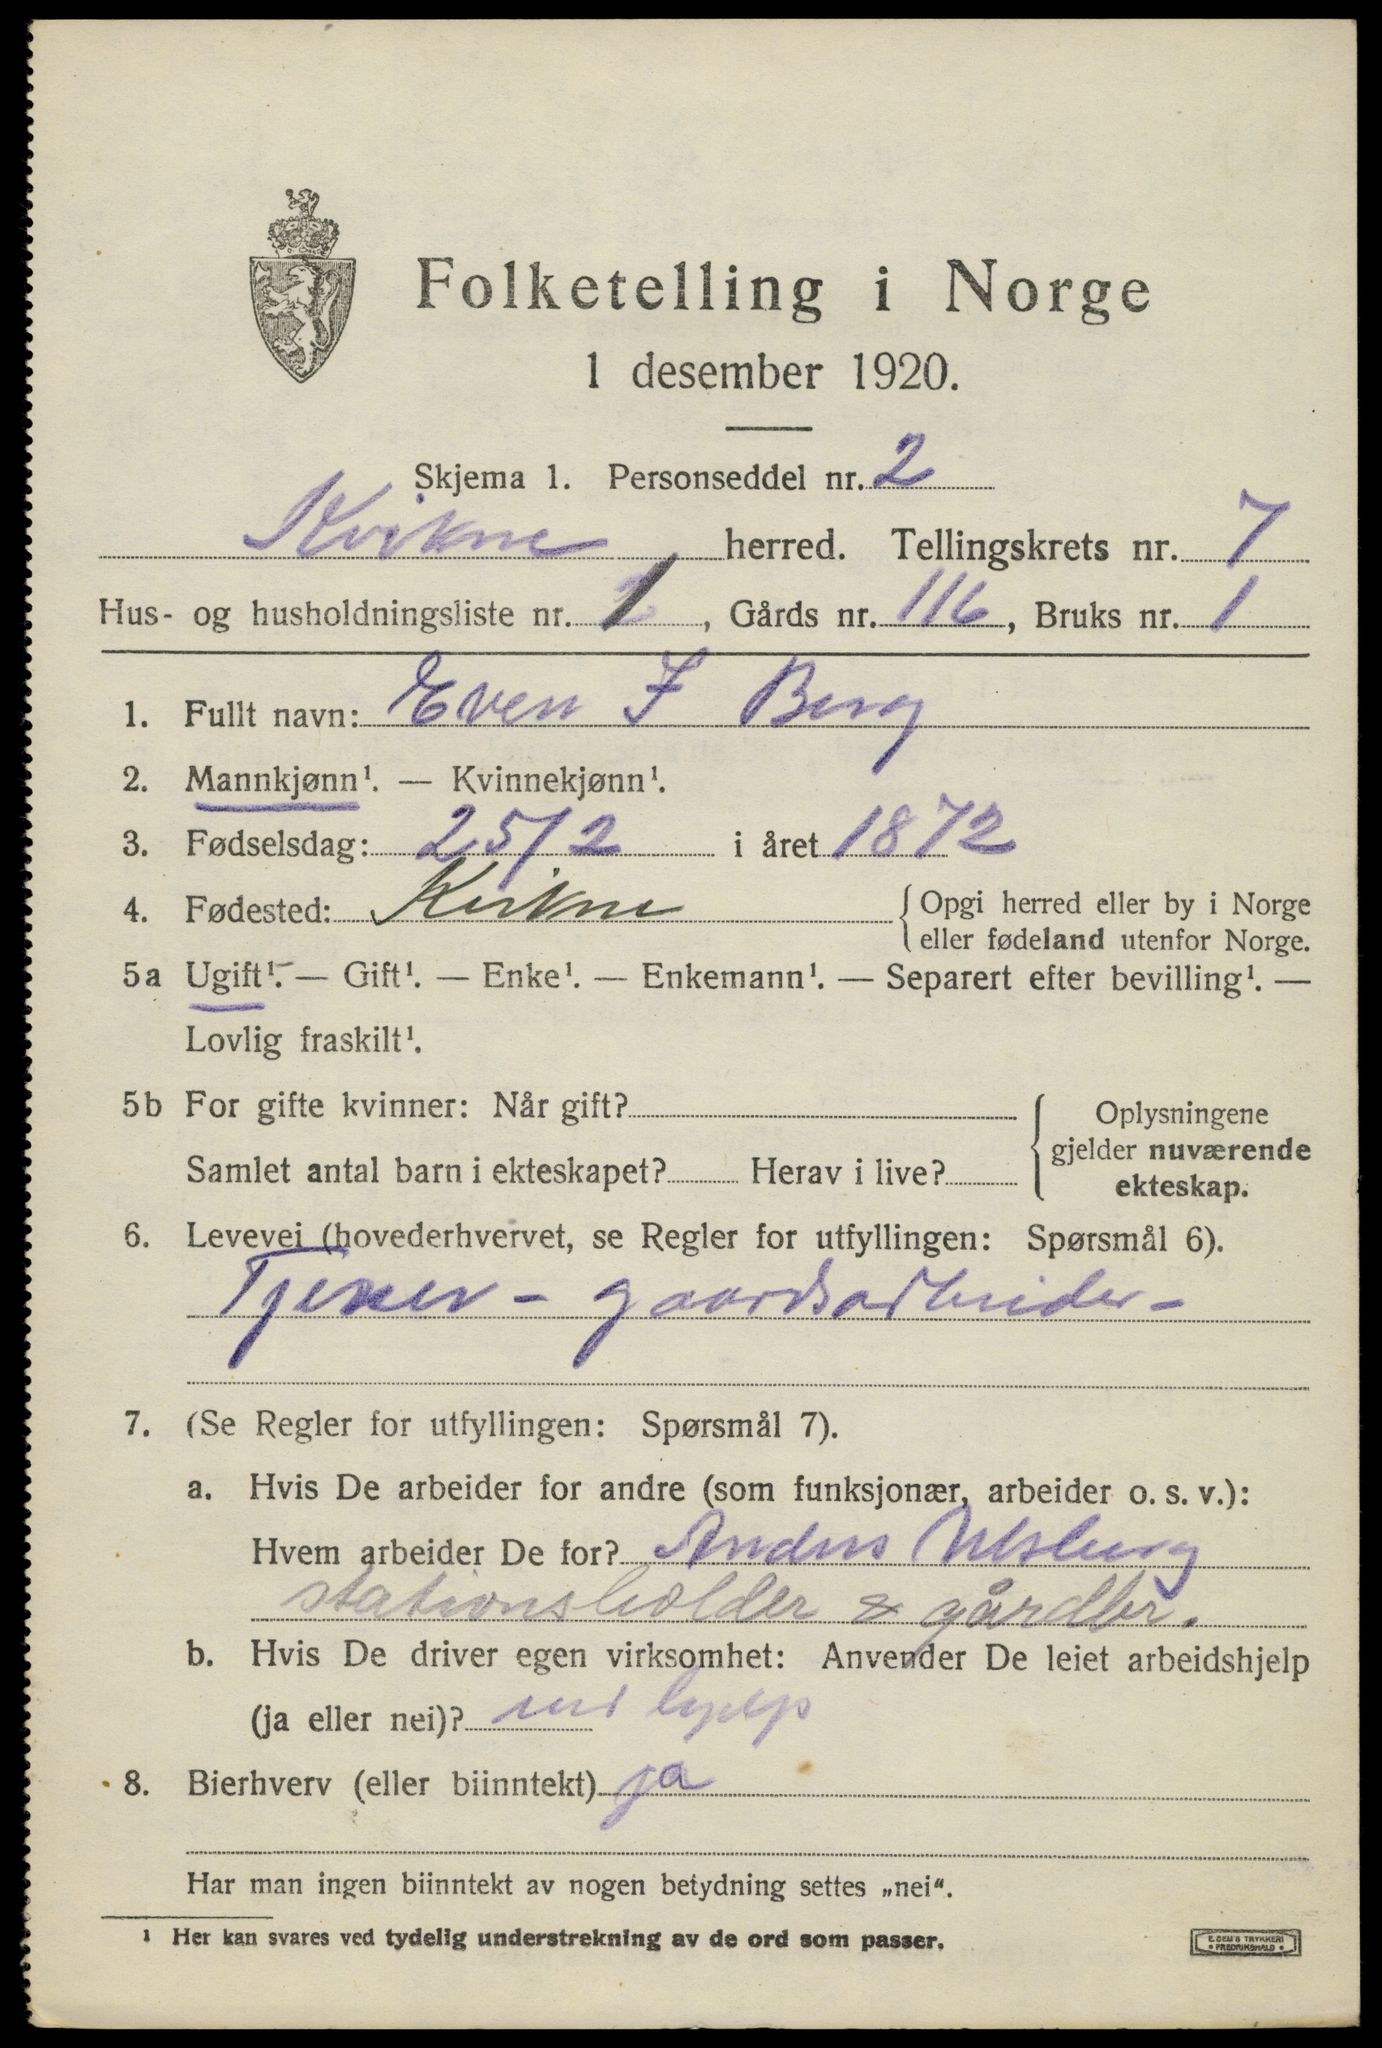 Folketelling i Norge
1 desember 1920.
Skjema 1. Personseddel nr. 2
Kvikne herred. Tellingskrets nr. 7
Hus- og husholdningsliste nr. 1, Gårds nr. 116, Bruks nr. 1
1. Fullt navn: Even J Berg
2. Mannkjønn¹. — Kvinnekjønn¹.
3. Fødselsdag: 25/2 i året 1872
4. Fødested: Kvikne {Opgi herred eller by i Norge
eller fødeland utenfor Norge.
5a Ugift¹. — Gift¹. — Enke¹. — Enkemann¹. — Separert efter bevilling¹. —
Lovlig fraskilt¹.
5b For gifte kvinner: Når gift? { Oplysningene
gjelder nuværende
Samlet antal barn i ekteskapet? Herav i live?
ekteskap.
6. Levevei (hovederhvervet, se Regler for utfyllingen: Spørsmål 6).
Tjener - gaardsarbeider -
7. (Se Regler for utfyllingen: Spørsmål 7).
a. Hvis De arbeider for andre (som funksjonær, arbeider o. s. v.):
Hvem arbeider De for? Anders Ulsberg
stationsholder & gårdbr.
b. Hvis De driver egen virksomhet: Anvender De leiet arbeidshjelp
(ja eller nei)? hjelp
8. Bierhverv (eller biinntekt) ja
Har man ingen biinntekt av nogen betydning settes „nei“.
¹ Her kan svares ved tydelig understrekning av de ord som passer.
E. SEM'S TRYKKERI
• FREDRIKSHALD •